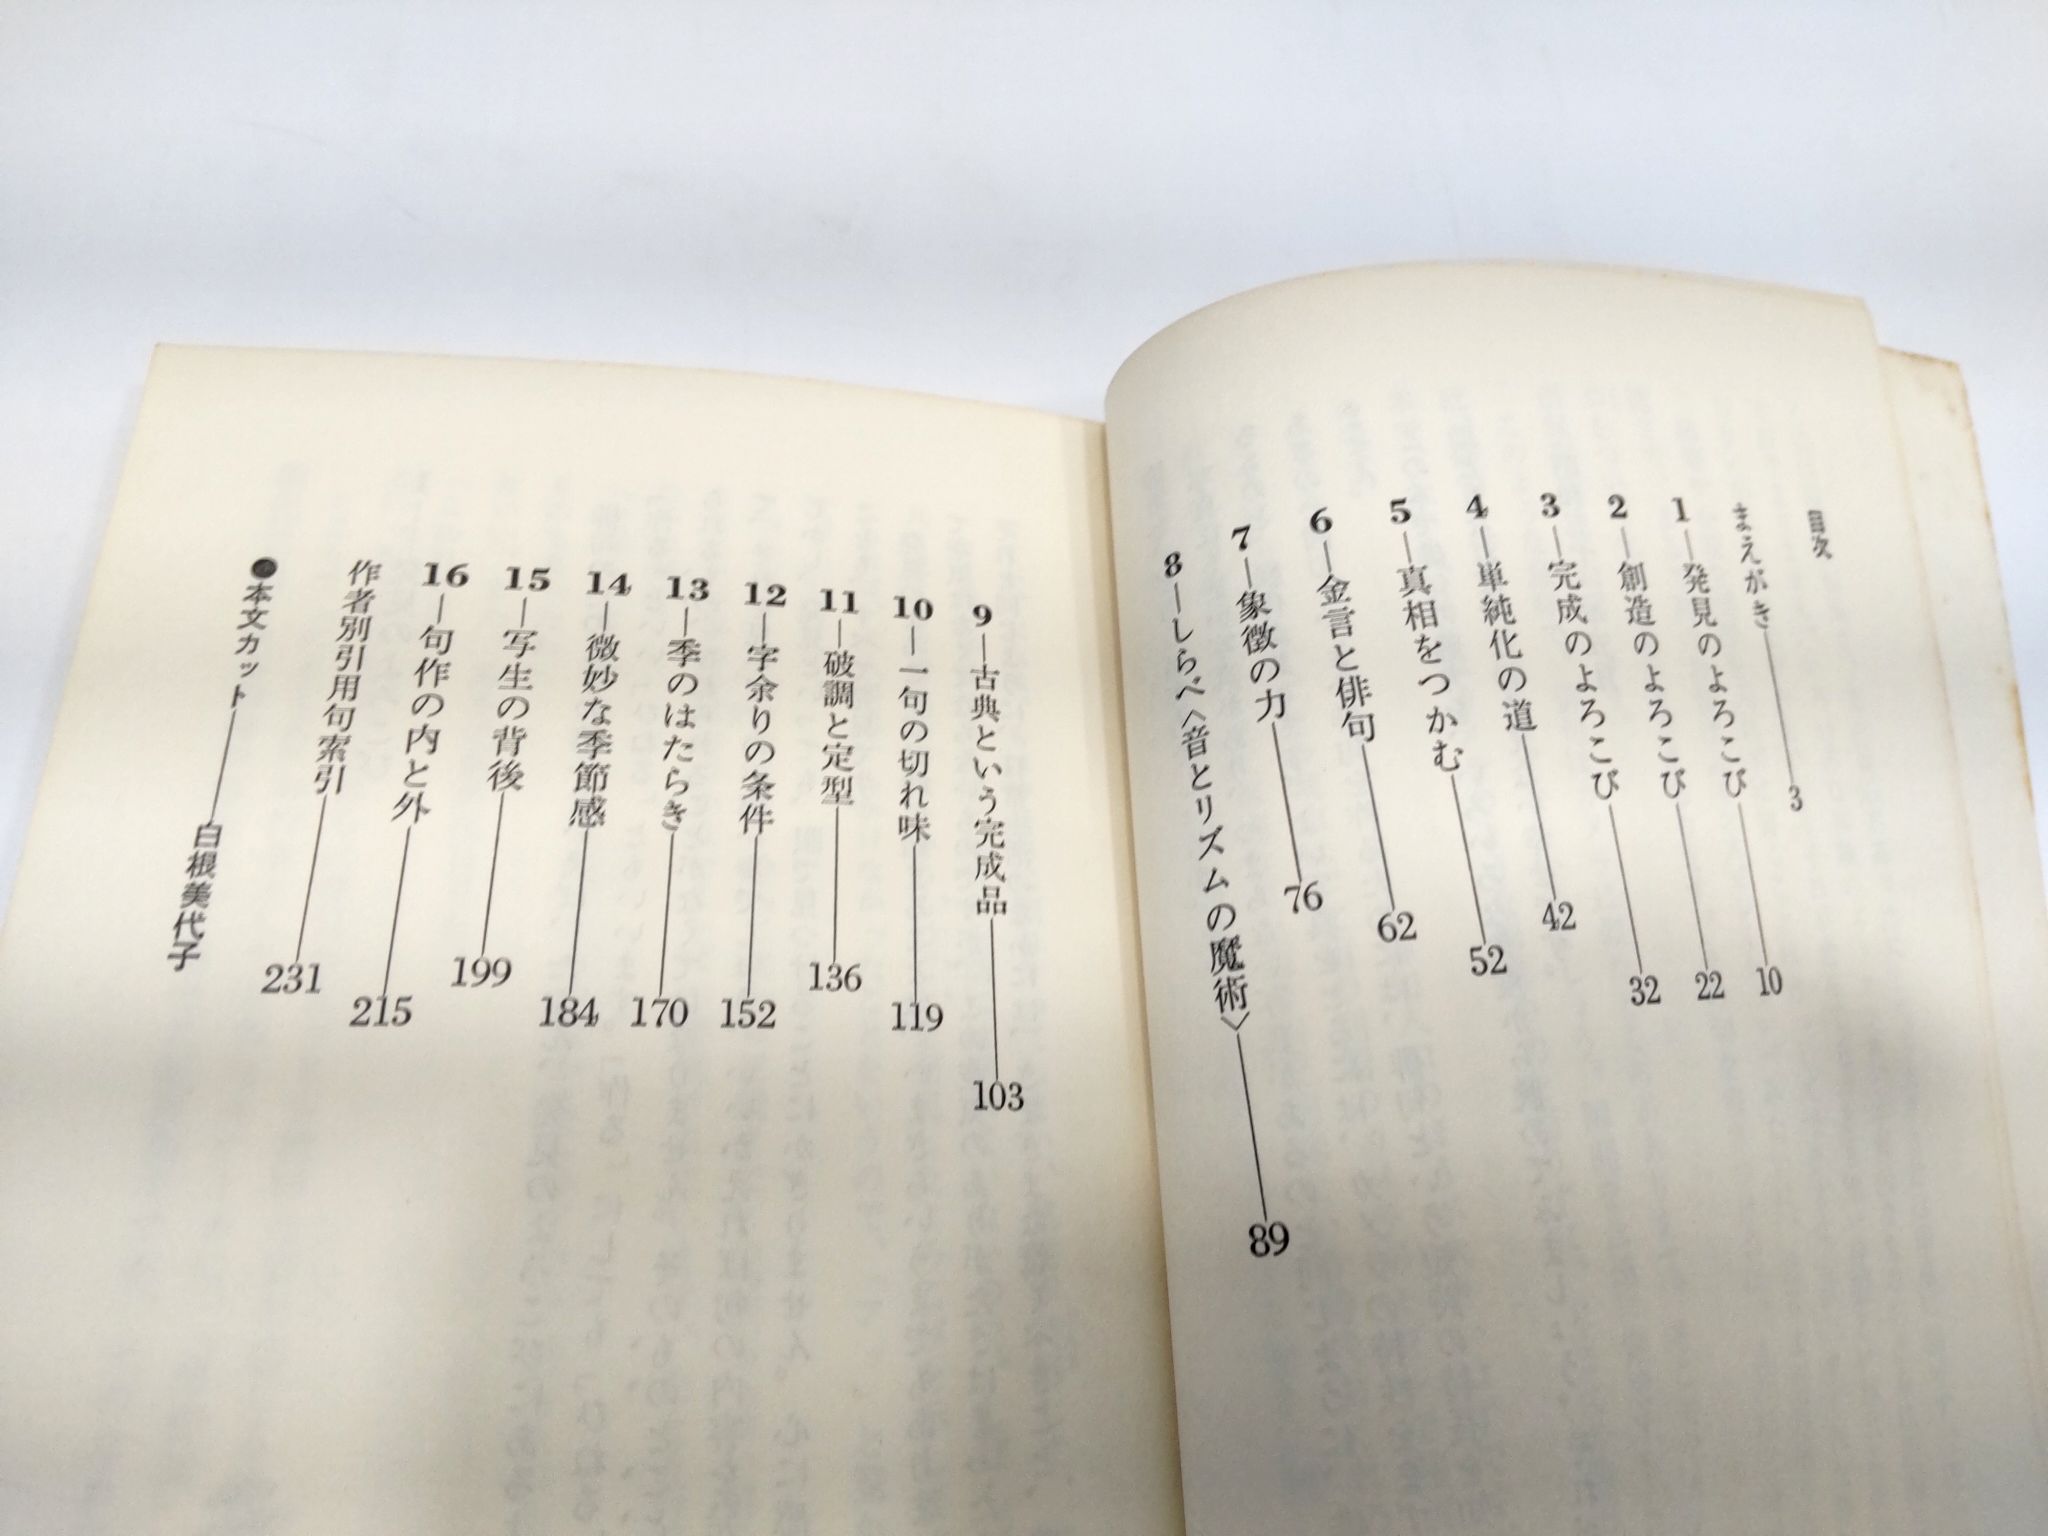 目次
まえがき―3
1―発見のよろこび―10
2―創造のよろこび―22
3―完成のよろこび―32
4―単純化の道―42
5―真相をつかむ―52
6―金言と俳句―62
7―象徴の力―76
8―しらべ〈音とリズムの魔術〉―89
9―古典という完成品―103
10―一句の切れ味―119
11―破調と定型―136
12―字余りの条件―152
13―季のはたらき―170
14―微妙な季節感―184
15―写生の背後―199
16―句作の内と外―215
作者別引用句索引―231
●本文カット―白根美代子